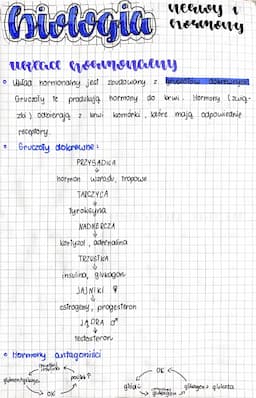 biologia
nerwy i
hormony
układ hormonalny
• Układ hormonalny jest zbudowany z gruczołów dokrewnych.
Gruczoły te produkują hormony do krwi. Hormony (zwią-
zki) odbierają z krwi komórki, które mają odpowiednie
receptory.
• Gruczoły dokrewne:
PRZYSADKA
↓
hormon wzrostu, tropowe
TARCZYCA
↓
tyroksyna
NADNERCZA
↓
kortyzol, adrenalina
TRZUSTKA
↓
insulina, glukagon
JAJNIKI ♀
↓
estrogeny, progesteron
JĄDRA ♂
↓
testosteron
• Hormony antagoniści
OK
OK
glukagon
glukoza